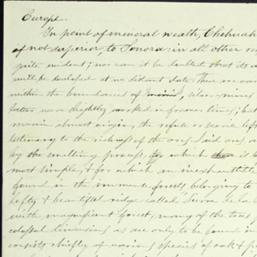 Europe.
In point of mineral wealth, Chihuah
if not superior, to Sonora in all other
quite evident; nor can it be doubted that its
will be developed at no distant date. There are
within the boundaries of mines, silver mines
latter now slightly worked in former times; but
remain almost virgin, the refuse or scoria left
testimony to the richness of the ores laid out
by the smelting process, for which there is
most simple, & for which an inexhaustible
found in the immense forests belonging to
lofty & beautiful ridge called "Sierra de la
with magnificent forest, many of the trees
colossal dimensions as are only to be found in
consists chiefly of various species of oak & p